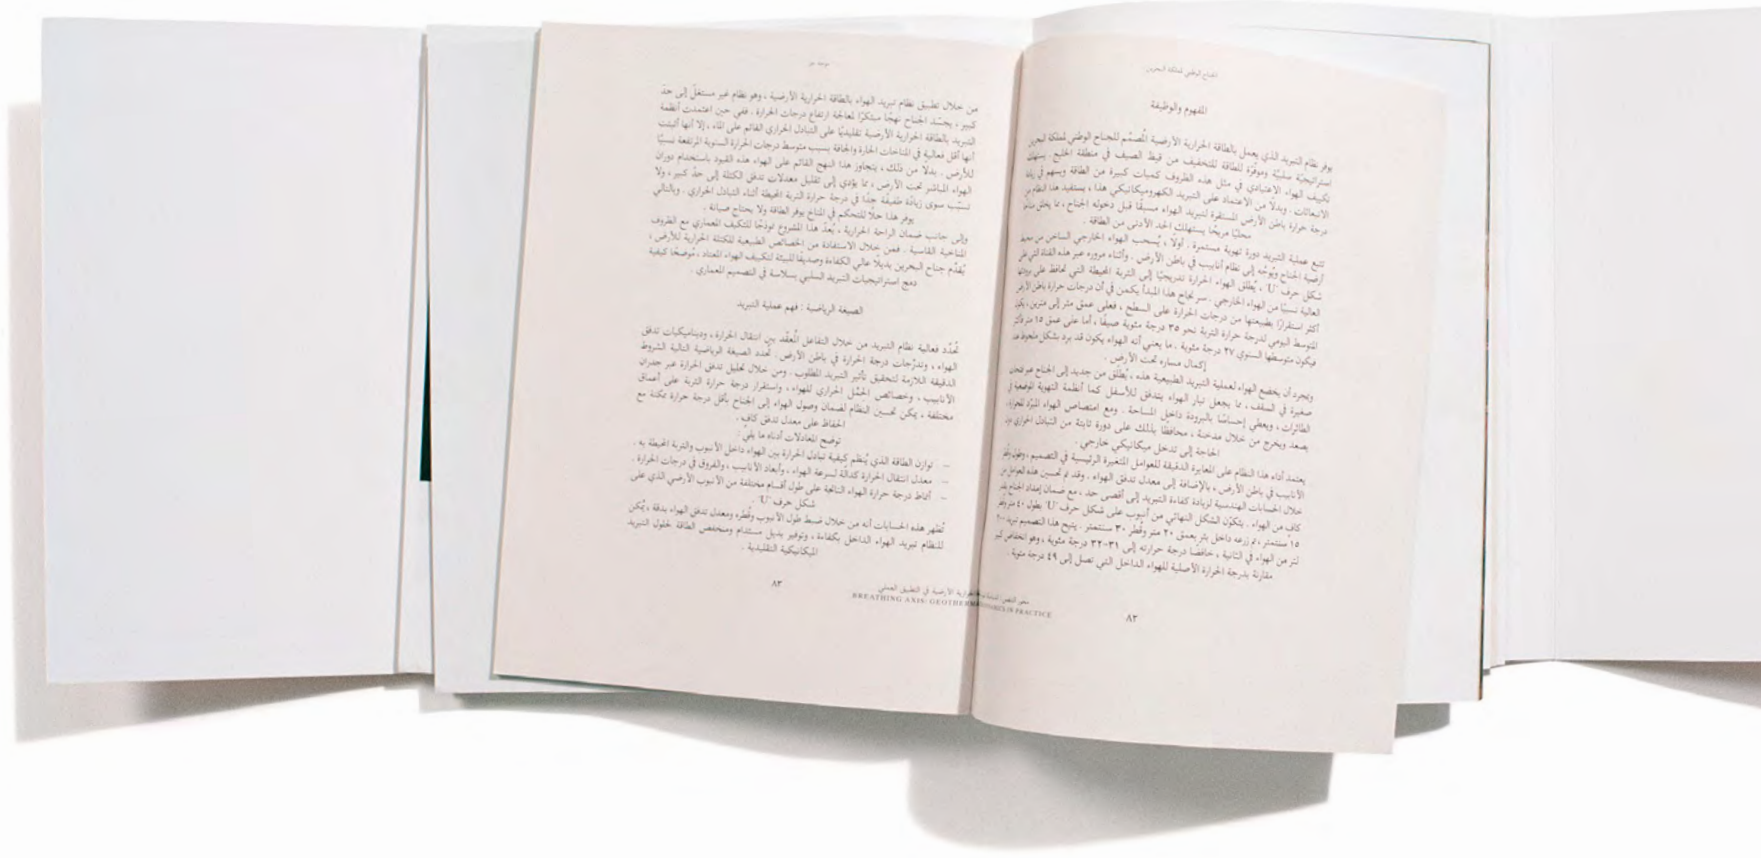 الجناح الوطني لمملكة البحرين
المفهوم والوظيفة
يوفر نظام التبريد الذي يعمل بالطاقة الحرارية الأرضية المُصمّم للجناح الوطني لمملكة البحرين
استراتيجيّة سلبيّة وموفّرة للطاقة للتخفيف من قيظ الصيف في منطقة الخليج. يستهلك
تكييف الهواء الاعتيادي في مثل هذه الظروف كميات كبيرة من الطاقة ويسهم في زيادة
الانبعاثات. وبدلًا من الاعتماد على التبريد الكهروميكانيكي هذا، يستفيد هذا النظام من
درجة حرارة باطن الأرض المستقرة لتبريد الهواء مسبقًا قبل دخوله الجناح، مما يخلق مناخًا
محليًا مريحًا يستهلك الحد الأدنى من الطاقة.
تتبع عملية التبريد دورة تهوية مستمرة. أولًا، يُسحب الهواء الخارجي الساخن من محيط
أرضية الجناح ويُوجَّه إلى نظام أنابيب في باطن الأرض. وأثناء مروره عبر هذه القناة التي على
شكل حرف "U"، يُطلق الهواء الحرارة تدريجيًا إلى التربة المحيطة التي تحافظ على برودتها
العالية نسبيًا من الهواء الخارجي. سر نجاح هذا المبدأ يكمن في أن درجات حرارة باطن الأرض
أكثر استقرارًا بطبيعتها من درجات الحرارة على السطح، فعلى عمق متر إلى مترين، يكون
المتوسط اليومي لدرجة حرارة التربة نحو ٣٥ درجة مئوية صيفًا، أما على عمق ١٥ متر فأكثر
فيكون متوسطها السنوي ٢٧ درجة مئوية، ما يعني أنه الهواء يكون قد برد بشكل ملحوظ عند
إكمال مساره تحت الأرض.
وبمجرد أن يخضع الهواء لعملية التبريد الطبيعية هذه، يُطلق من جديد إلى الجناح عبر فتحات
صغيرة في السقف، مما يجعل تيار الهواء يتدفق للأسفل كما أنظمة التهوية الموضعية في
الطائرات، ويعطي إحساسًا بالبرودة داخل المساحة. ومع امتصاص الهواء المبرّد للحرارة،
يصعد ويخرج من خلال مدخنة، محافظًا بذلك على دورة ثابتة من التبادل الحراري دون
الحاجة إلى تدخل ميكانيكي خارجي.
يعتمد أداء هذا النظام على المعايرة الدقيقة للعوامل المتغيرة الرئيسية في التصميم، وطول وقُطر
الأنابيب في باطن الأرض، بالإضافة إلى معدل تدفق الهواء. وقد تم تحسين هذه العوامل من
خلال الحسابات الهندسية لزيادة كفاءة التبريد إلى أقصى حد، مع ضمان إمداد الجناح بقدر
كاف من الهواء. يتكوّن الشكل النهائي من أنبوب على شكل حرف "U" بطول ٤٠ متر وقُطر
١٥ سنتمتر، تم زرعه داخل بئر بعمق ٢٠ متر وقُطر ٣٠ سنتمتر. يتيح هذا التصميم تبريد ٢٠٠
لتر من الهواء في الثانية، خافضًا درجة حرارته إلى ٣١–٣٢ درجة مئوية، وهو انخفاض كبير
مقارنة بدرجة الحرارة الأصلية للهواء الداخل التي تصل إلى ٤٩ درجة مئوية.
٨٢
من خلال تطبيق نظام تبريد الهواء بالطاقة الحرارية الأرضية، وهو نظام غير مستغلّ إلى حدّ
كبير، يجسّد الجناح نهجًا مبتكرًا لمعالجة ارتفاع درجات الحرارة. ففي حين اعتمدت أنظمة
التبريد بالطاقة الحرارية الأرضية تقليديًا على التبادل الحراري القائم على الماء، إلا أنها أثبتت
أنها أقل فعالية في المناخات الحارة والجافة بسبب متوسط درجات الحرارة السنوية المرتفعة نسبيًا
للأرض. بدلًا من ذلك، يتجاوز هذا النهج القائم على الهواء هذه القيود باستخدام دوران
الهواء المباشر تحت الأرض، مما يؤدي إلى تقليل معدلات تدفق الكتلة إلى حدّ كبير، ولا
تسبّب سوى زيادة طفيفة جدًا في درجة حرارة التربة المحيطة أثناء التبادل الحراري. وبالتالي
يوفر هذا حلًا للتحكم في المناخ يوفر الطاقة ولا يحتاج صيانة.
وإلى جانب ضمان الراحة الحرارية، يُعدّ هذا المشروع نموذجًا للتكيف المعماري مع الظروف
المناخية القاسية. فمن خلال الاستفادة من الخصائص الطبيعية للكتلة الحرارية للأرض،
يُقدّم جناح البحرين بديلًا عالي الكفاءة وصديقًا للبيئة لتكييف الهواء المعتاد، مُوضحًا كيفية
دمج استراتيجيات التبريد السلبي بسلاسة في التصميم المعماري.
الصيغة الرياضية: فهم عملية التبريد
تُحدّد فعالية نظام التبريد من خلال التفاعل المُعقّد بين انتقال الحرارة، وديناميكيات تدفق
الهواء، وتدرّجات درجة الحرارة في باطن الأرض. تُحدد الصيغة الرياضية التالية الشروط
الدقيقة اللازمة لتحقيق تأثير التبريد المطلوب. ومن خلال تحليل تدفق الحرارة عبر جدران
الأنابيب، وخصائص الحمْل الحراري للهواء، واستقرار درجة حرارة التربة على أعماق
مختلفة، يمكن تحسين النظام لضمان وصول الهواء إلى الجناح بأقل درجة حرارة ممكنة مع
الحفاظ على معدل تدفق كاف.
توضح المعادلات أدناه ما يلي:
– توازن الطاقة الذي يُنظم كيفية تبادل الحرارة بين الهواء داخل الأنبوب والتربة المحيطة به.
– معدل انتقال الحرارة كدالة لسرعة الهواء، وأبعاد الأنابيب، والفروق في درجات الحرارة.
– أنماط درجة حرارة الهواء الناتجة على طول أقسام مختلفة من الأنبوب الأرضي الذي على
شكل حرف "U".
تُظهر هذه الحسابات أنه من خلال ضبط طول الأنبوب وقُطره ومعدل تدفق الهواء بدقة، يُمكن
للنظام تبريد الهواء الداخل بكفاءة، وتوفير بديل مستدام ومنخفض الطاقة لحلول التبريد
الميكانيكية التقليدية.
٨٣
الحرارية الأرضية في التطبيق العملي
BREATHING AXIS: GEOTHERM IN PRACTICE